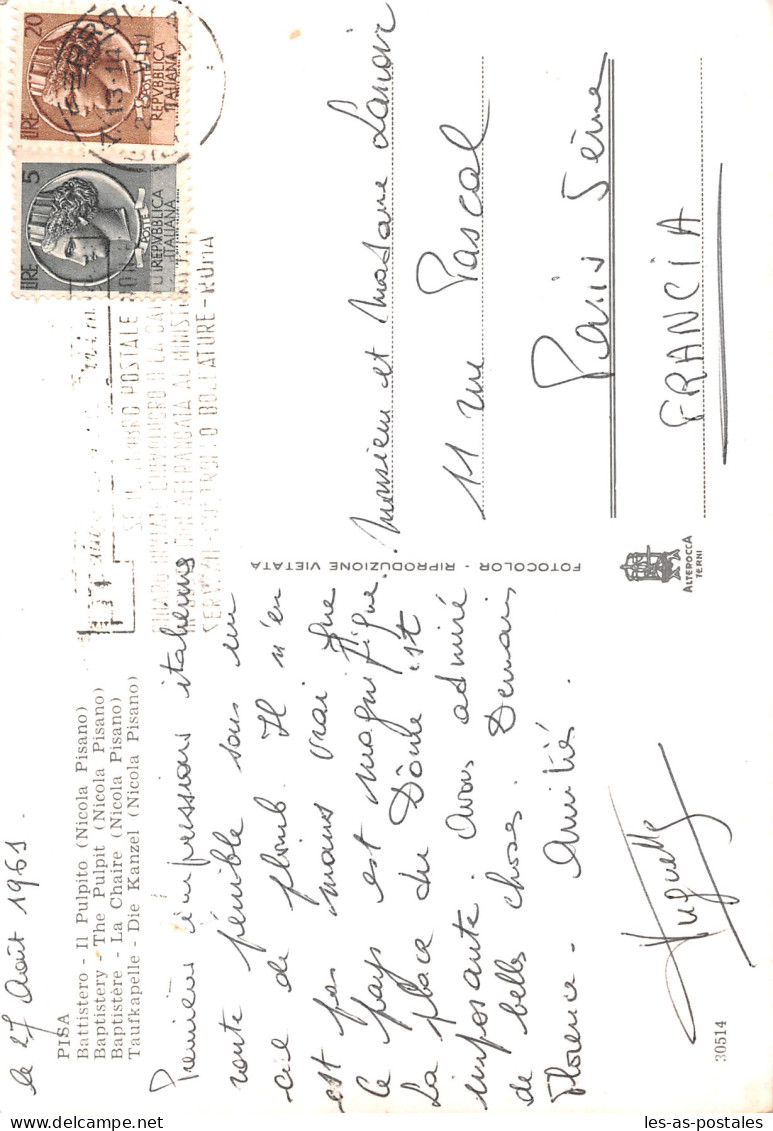 le 27 Août 1961.
PISA
Battistero - Il Pulpito (Nicola Pisano)
Baptistery - The Pulpit (Nicola Pisano)
Baptistère - La Chaire (Nicola Pisano)
Taufkapelle - Die Kanzel (Nicola Pisano)
Premières impressions italiennes
route pénible sous un
ciel de plomb. Il n'en
est pas moins vrai que
le pays est magnifique.
La place du Dôme est
imposante. Avons admiré
de belles choses. Demain
Florence - Amitiés.
Huguette
30514
FOTOCOLOR - RIPRODUZIONE VIETATA
ALTEROCCA
TERNI
LIRE 20
POSTE
REPVBBLICA
ITALIANA
LIRE 5
POSTE
REPVBBLICA
ITALIANA
POSTALE
ROMA
Monsieur et Madame Lanoir
11 rue Pascal
Paris 5ème
FRANCIA
les-as-postales